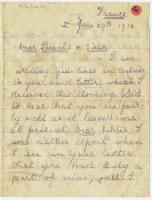 France
June 29th 1918
Dear Parents & Sister
I am
writing you lines in answer
to your kind letter which I
received this morning. Glad
to hear that you are fairly
well as it leaves me
at present, Dear Sister I
was rather upset when
I see in your letter
that you had a
part of mine, well I